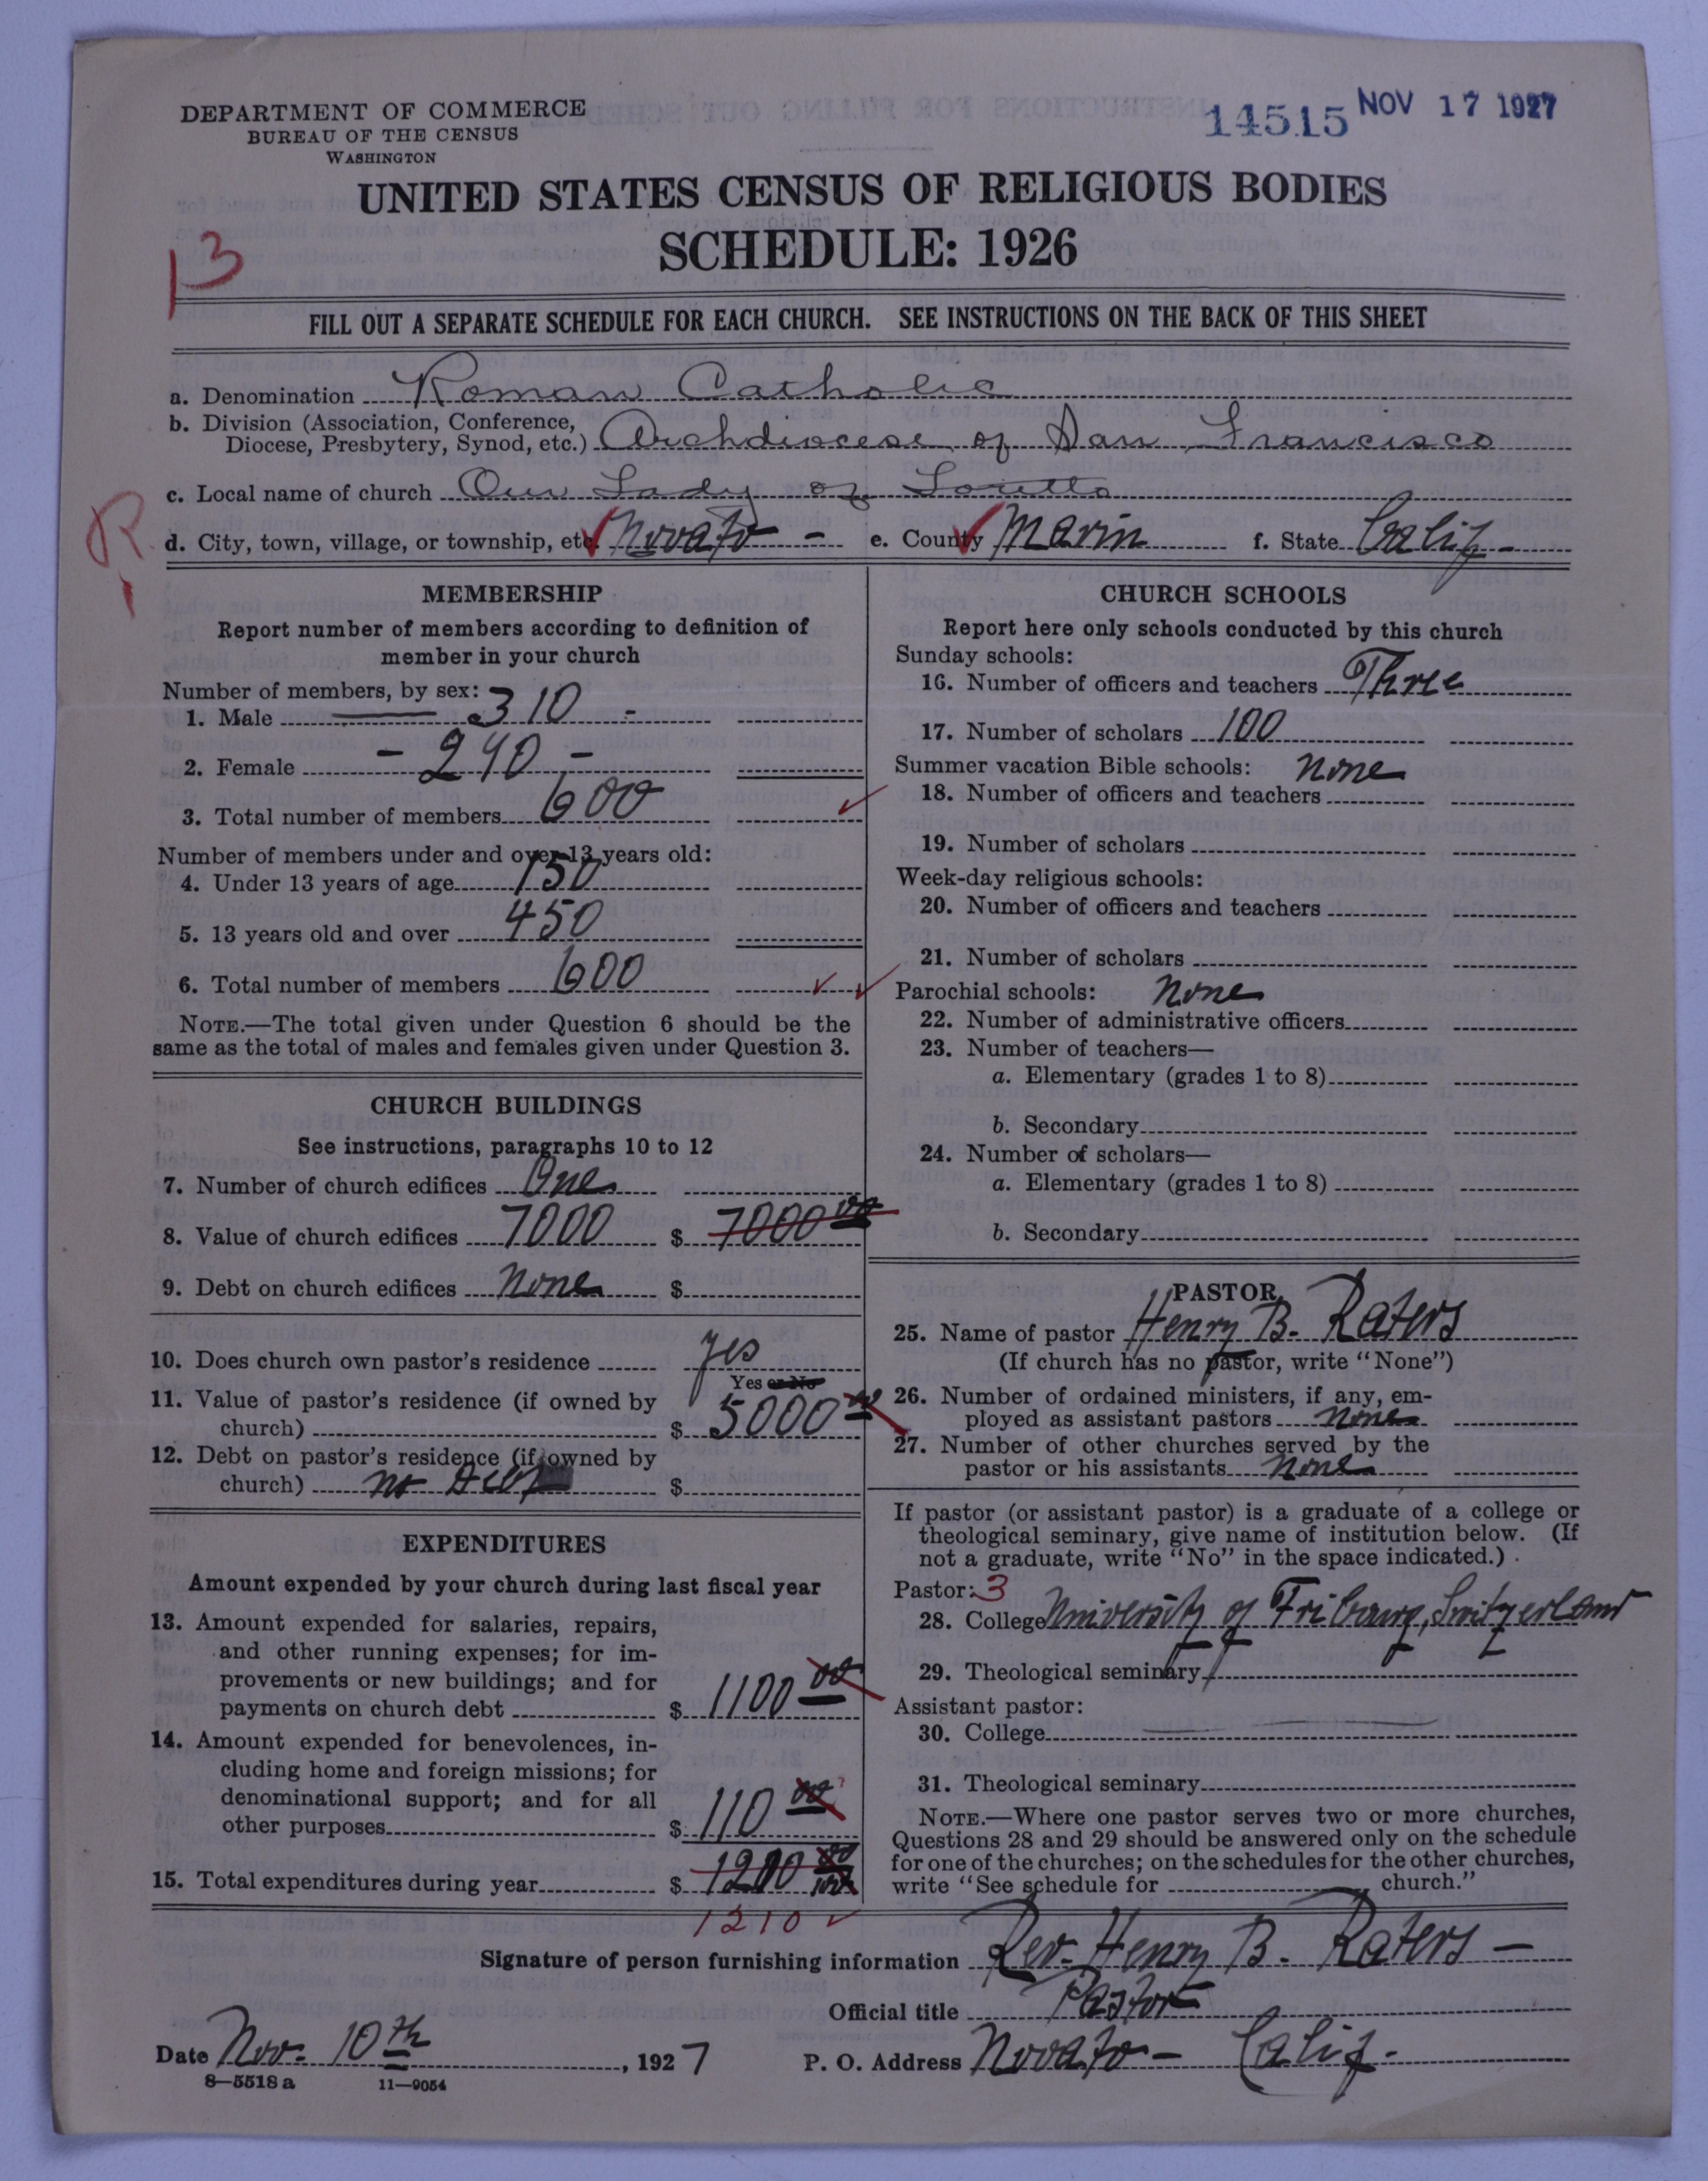 DEPARTMENT OF COMMERCE
BUREAU OF THE CENSUS
WASHINGTON
14515 NOV 17 1927
UNITED STATES CENSUS OF RELIGIOUS BODIES
SCHEDULE: 1926
13
FILL OUT A SEPARATE SCHEDULE FOR EACH CHURCH. SEE INSTRUCTIONS ON THE BACK OF THIS SHEET
a. Denomination Roman Catholic
b. Division (Association, Conference,
Diocese, Presbytery, Synod, etc.) Archdiocese of San Francisco
c. Local name of church Our Lady of Loretto
R
d. City, town, village, or township, etc. Novato - e. County Marin f. State Calif-
MEMBERSHIP
Report number of members according to definition of
member in your church
Number of members, by sex:
1. Male 310 -
2. Female - 290 -
3. Total number of members 600
Number of members under and over 13 years old:
4. Under 13 years of age 150
5. 13 years old and over 450
6. Total number of members 600
NOTE.—The total given under Question 6 should be the
same as the total of males and females given under Question 3.
CHURCH BUILDINGS
See instructions, paragraphs 10 to 12
7. Number of church edifices One
8. Value of church edifices 7000 $ 7000 00
9. Debt on church edifices None $
10. Does church own pastor's residence yes
Yes or No
11. Value of pastor's residence (if owned by
church) $ 5000 00
12. Debt on pastor's residence (if owned by
church) no debt $
EXPENDITURES
Amount expended by your church during last fiscal year
13. Amount expended for salaries, repairs,
and other running expenses; for im-
provements or new buildings; and for
payments on church debt $ 1100 00
14. Amount expended for benevolences, in-
cluding home and foreign missions; for
denominational support; and for all
other purposes $ 110 00
15. Total expenditures during year $ 1210 00
1210
CHURCH SCHOOLS
Report here only schools conducted by this church
Sunday schools:
16. Number of officers and teachers Three
17. Number of scholars 100
Summer vacation Bible schools: None
18. Number of officers and teachers
19. Number of scholars
Week-day religious schools:
20. Number of officers and teachers
21. Number of scholars
Parochial schools: None
22. Number of administrative officers
23. Number of teachers—
a. Elementary (grades 1 to 8)
b. Secondary
24. Number of scholars—
a. Elementary (grades 1 to 8)
b. Secondary
PASTOR
25. Name of pastor Henry B. Raters
(If church has no pastor, write "None")
26. Number of ordained ministers, if any, em-
ployed as assistant pastors none
27. Number of other churches served by the
pastor or his assistants none
If pastor (or assistant pastor) is a graduate of a college or
theological seminary, give name of institution below. (If
not a graduate, write "No" in the space indicated.)
Pastor: 3
28. College University of Fribourg, Switzerland
29. Theological seminary
Assistant pastor:
30. College
31. Theological seminary
NOTE.—Where one pastor serves two or more churches,
Questions 28 and 29 should be answered only on the schedule
for one of the churches; on the schedules for the other churches,
write "See schedule for church."
Signature of person furnishing information Rev. Henry B. Raters -
Official title Pastor
Date Nov. 10th, 1927 P. O. Address Novato - Calif-
8—5518 a 11—9054